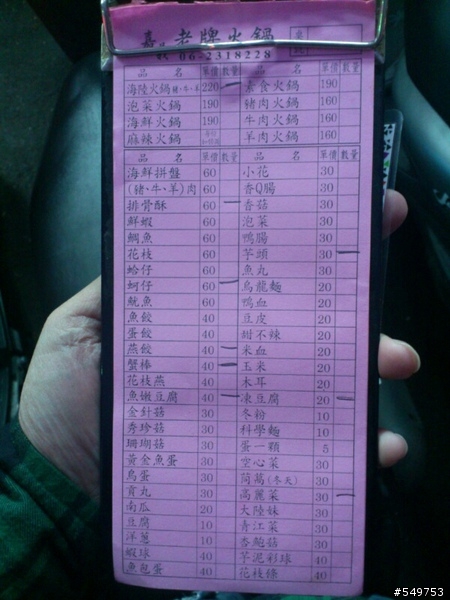 老牌火鍋
06-2318228
品 名 單價 數量 品 名 單價 數量
220 素食火鍋 190
泡菜火鍋 190 豬肉火鍋 160
海鮮火鍋 190 牛肉火鍋 160
麻辣火鍋 羊肉火鍋 160
品 名 單價 數量 品 名 單價 數量
海鮮拼盤 60 小花 30
(豬、牛、羊)肉 60 香Q腸 30
排骨酥 60 香菇 30
鮮蝦 60 泡菜 30
鯛魚 60 鴨腸 30
花枝 60 芋頭 30
蛤仔 60 魚丸 30
蚵仔 60 烏龍麵 20
魷魚 60 鴨血 20
魚餃 40 豆皮 20
蛋餃 40 甜不辣 20
燕餃 40 米血 20
蟹棒 40 玉米 20
花枝燕 40 木耳 20
魚嫩豆腐 40 凍豆腐 20
金針菇 30 冬粉 10
秀珍菇 30 科學麵 10
珊瑚菇 30 蛋一顆 5
黃金魚蛋 30 空心菜 30
鳥蛋 30 茼萵(冬天) 30
貢丸 30 高麗菜 30
南瓜 20 大陸妹 30
豆腐 10 青江菜 30
洋蔥 10 杏鮑菇 30
蝦球 40 芋泥彩球 40
魚包蛋 40 花枝條 40
#549753